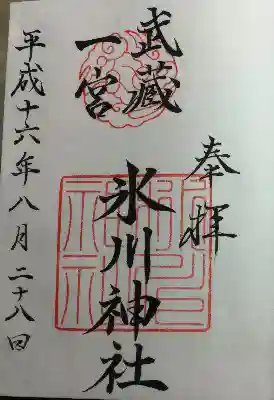 奉拝
武蔵
一宮
氷川神社
平成十六年八月二十八日